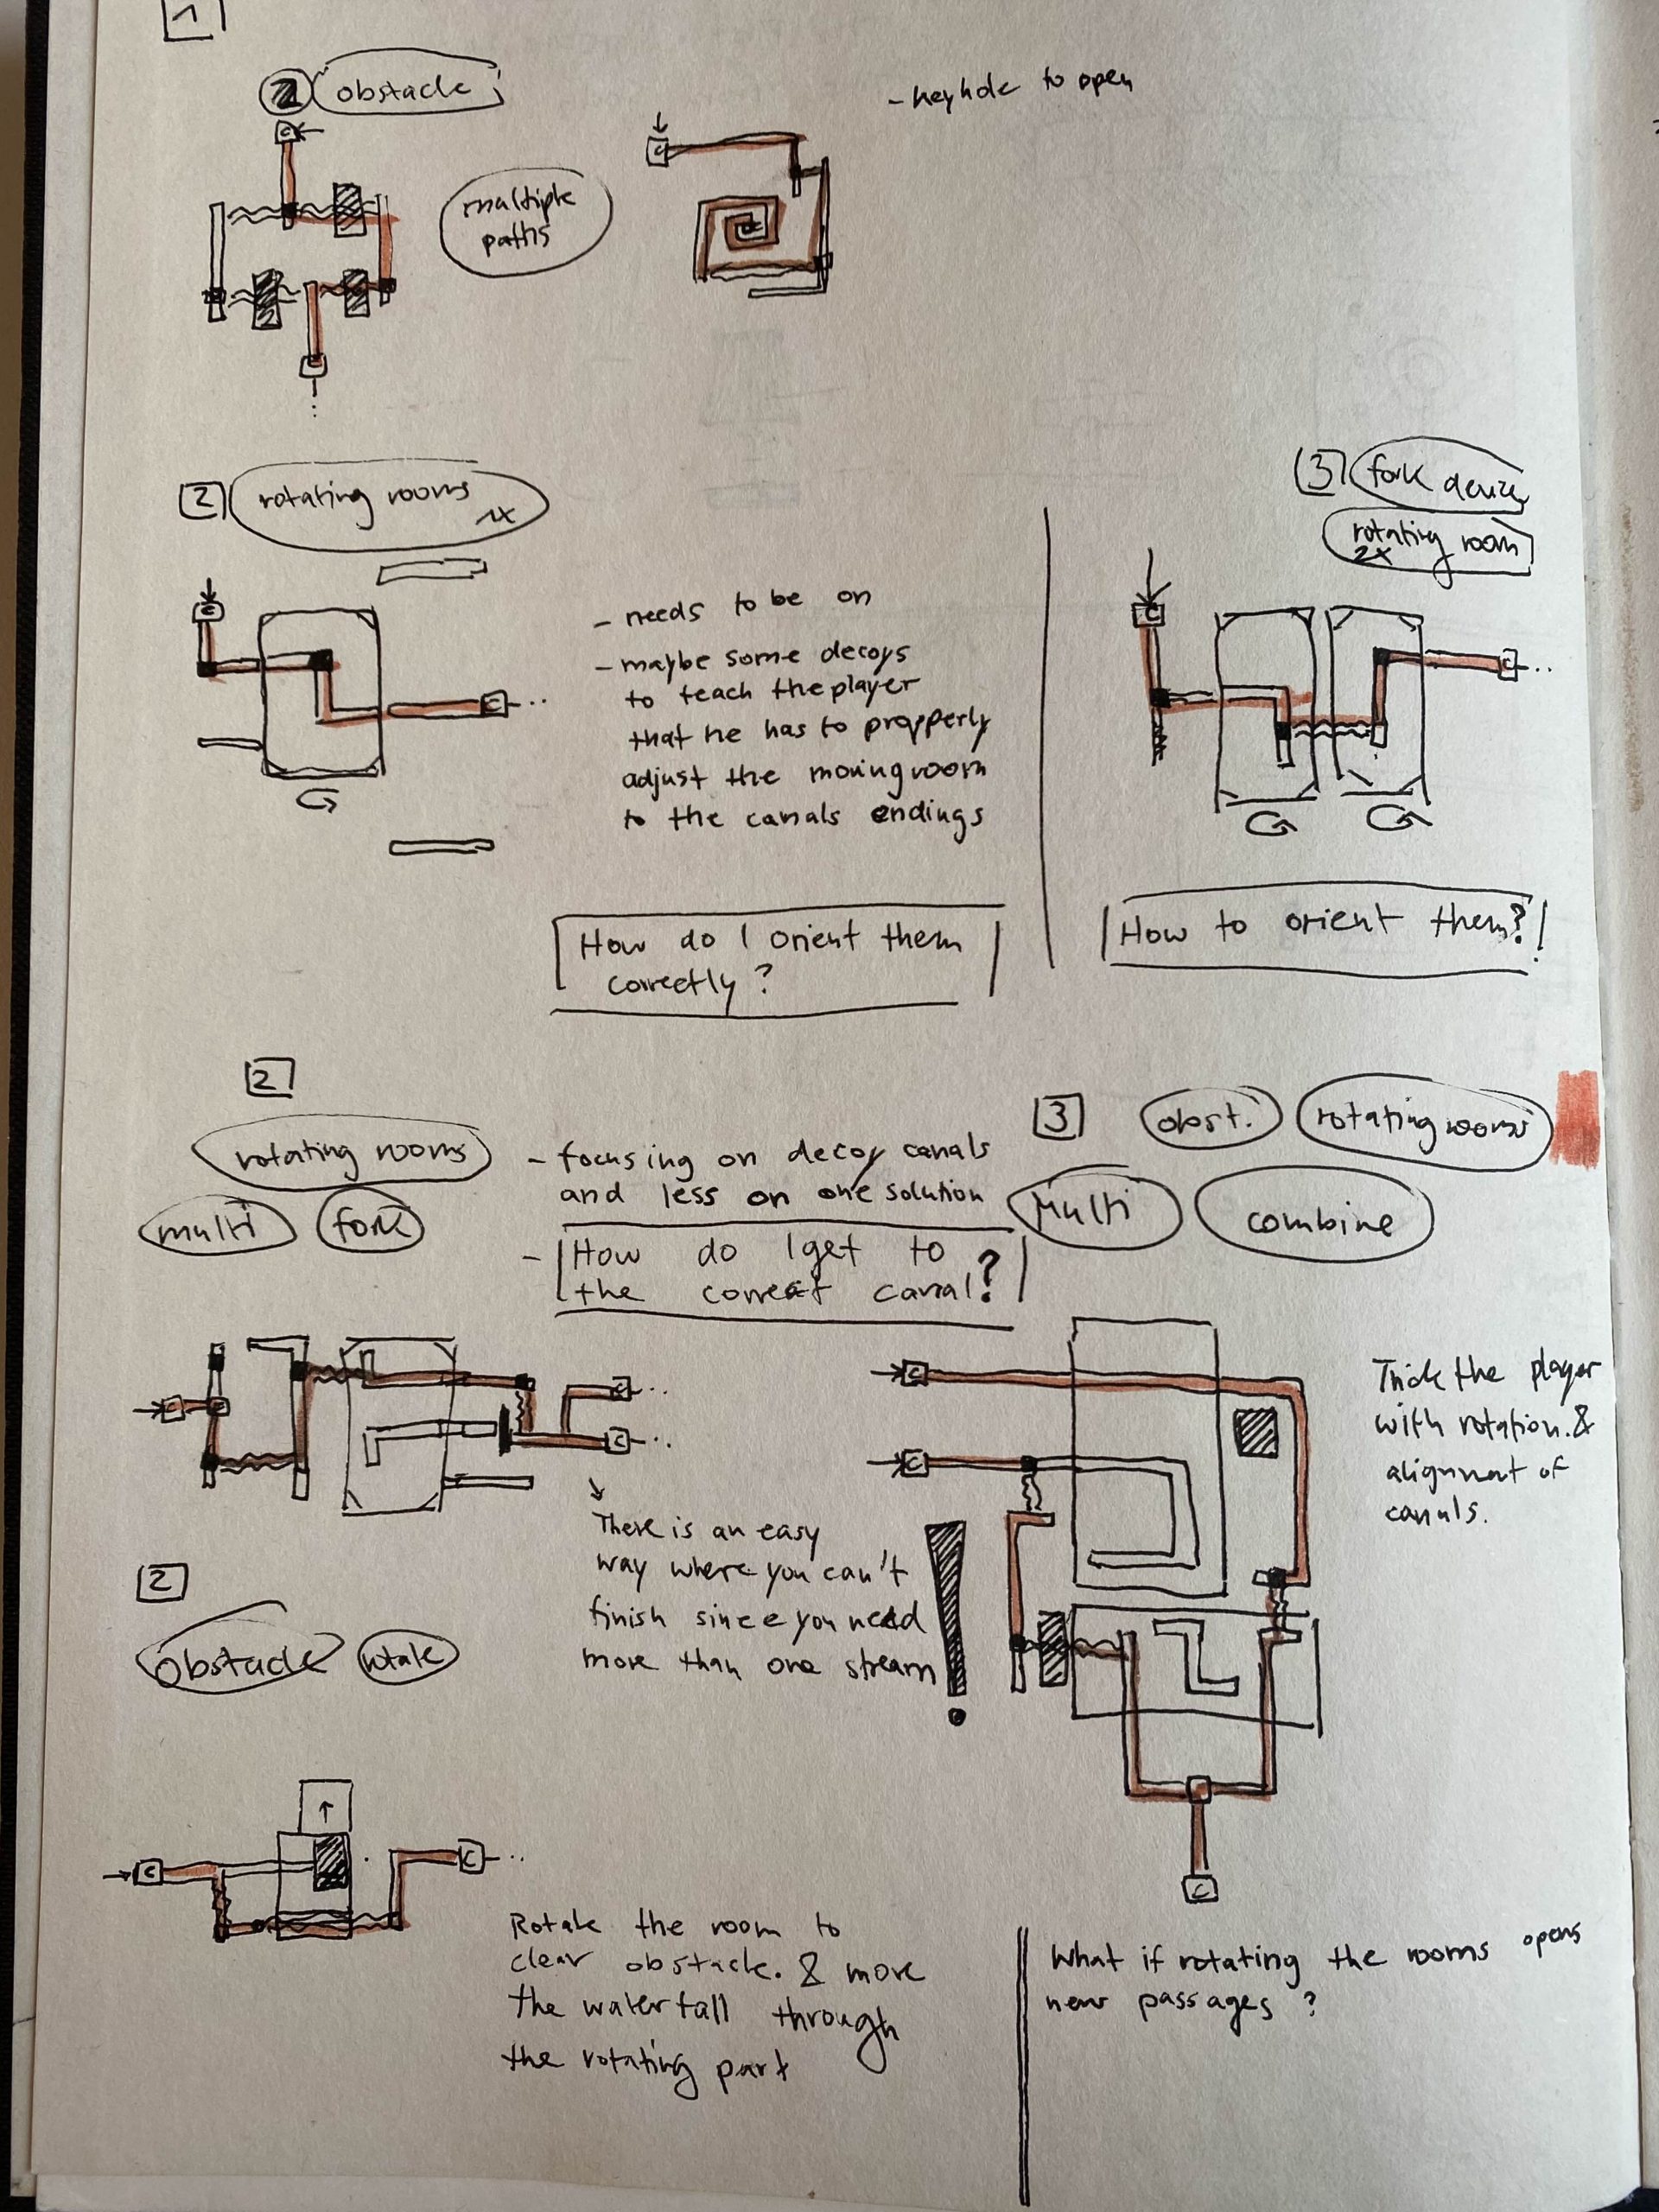 1
obstacle
- keyhole to open
C
C
multiple
paths
C
2 rotating rooms
1x
3 fork device
rotating room
2x
C
C ..
- needs to be on
- maybe some decoys
to teach the player
that he has to propperly
adjust the moving room
to the canals endings
C
C ..
How do I orient them
correctly?
How to orient them?!
2
rotating rooms
multi
fork
- focusing on decoy canals
and less on one solution
- How do I get to
the correct canal?
3
obst.
rotating rooms
Multi
combine
C
C ..
C ..
There is an easy
way where you can't
finish since you need
more than one stream
!
C
C
C
Trick the player
with rotation. &
alignment of
canals.
2
obstacle
rotate
C
C ..
Rotate the room to
clear obstacle. & move
the waterfall through
the rotating part
What if rotating the rooms opens
new passages?